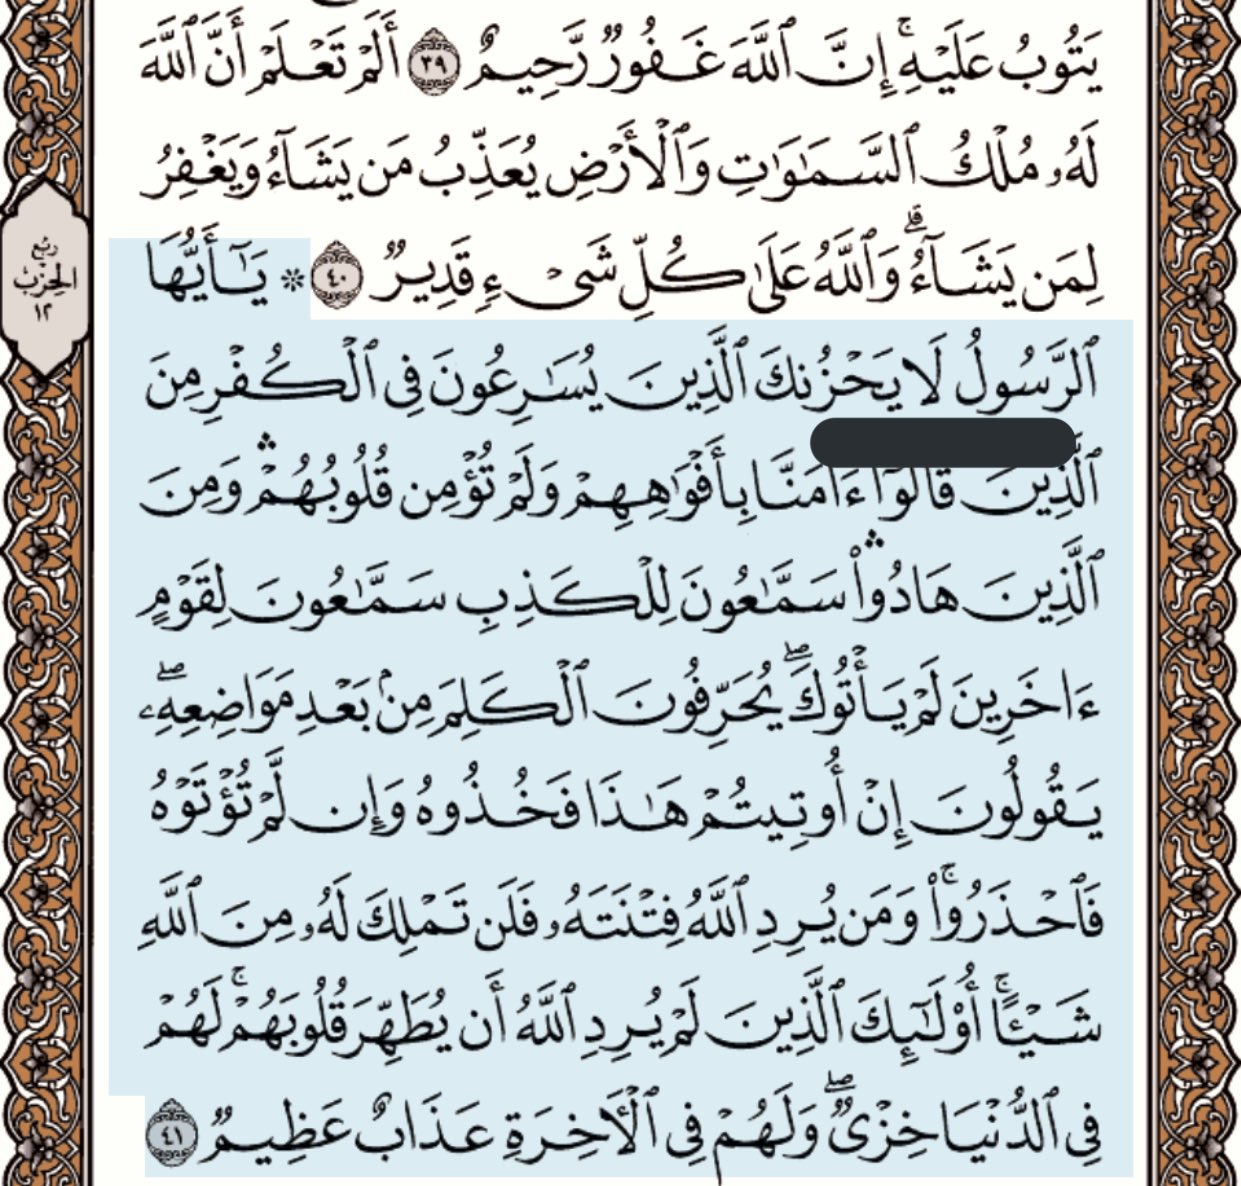 يَتُوبُ عَلَيْهِۚ إِنَّ ٱللَّهَ غَفُورٞ رَّحِيمٌ ٣٩ أَلَمۡ تَعۡلَمۡ أَنَّ ٱللَّهَ
لَهُۥ مُلۡكُ ٱلسَّمَٰوَٰتِ وَٱلۡأَرۡضِ يُعَذِّبُ مَن يَشَآءُ وَيَغۡفِرُ
لِمَن يَشَآءُۗ وَٱللَّهُ عَلَىٰ كُلِّ شَيۡءٖ قَدِيرٞ ٤٠ ۞ يَٰٓأَيُّهَا
ربع
الحزب
١٢
ٱلرَّسُولُ لَا يَحۡزُنكَ ٱلَّذِينَ يُسَٰرِعُونَ فِي ٱلۡكُفۡرِ مِنَ
ٱلَّذِينَ قَالُوٓاْ ءَامَنَّا بِأَفۡوَٰهِهِمۡ وَلَمۡ تُؤۡمِن قُلُوبُهُمۡۛ وَمِنَ
ٱلَّذِينَ هَادُواْۛ سَمَّٰعُونَ لِلۡكَذِبِ سَمَّٰعُونَ لِقَوۡمٍ
ءَاخَرِينَ لَمۡ يَأۡتُوكَۖ يُحَرِّفُونَ ٱلۡكَلِمَ مِنۢ بَعۡدِ مَوَاضِعِهِۦۖ
يَقُولُونَ إِنۡ أُوتِيتُمۡ هَٰذَا فَخُذُوهُ وَإِن لَّمۡ تُؤۡتَوۡهُ
فَٱحۡذَرُواْۚ وَمَن يُرِدِ ٱللَّهُ فِتۡنَتَهُۥ فَلَن تَمۡلِكَ لَهُۥ مِنَ ٱللَّهِ
شَيۡـًٔاۚ أُوْلَٰٓئِكَ ٱلَّذِينَ لَمۡ يُرِدِ ٱللَّهُ أَن يُطَهِّرَ قُلُوبَهُمۡۚ لَهُمۡ
فِي ٱلدُّنۡيَا خِزۡيٞۖ وَلَهُمۡ فِي ٱلۡأٓخِرَةِ عَذَابٌ عَظِيمٞ ٤١